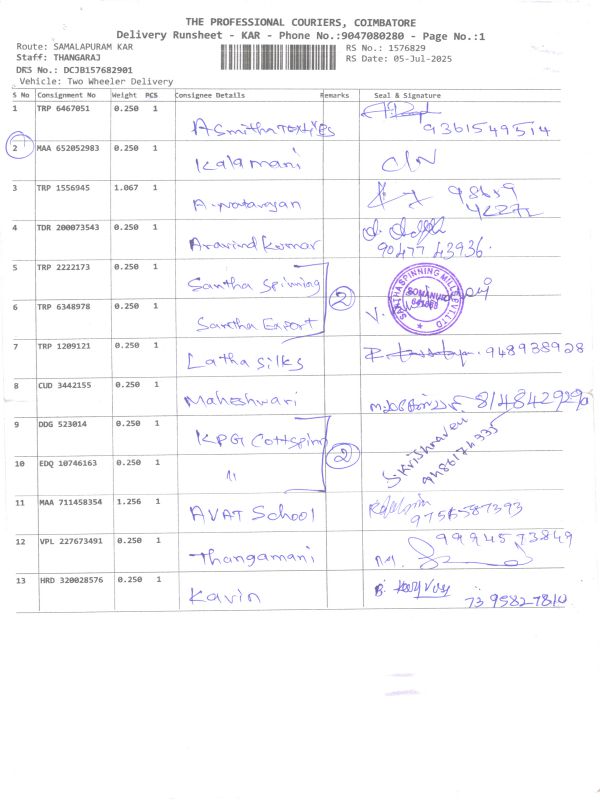 THE PROFESSIONAL COURIERS, COIMBATORE
Delivery Runsheet - KAR - Phone No.:9047080280 - Page No.:1
Route: SAMALAPURAM KAR
RS No.: 1576829
Staff: THANGARAJ
RS Date: 05-Jul-2025
DRS No.: DCJB157682901
Vehicle: Two Wheeler Delivery
S No Consignment No Weight PCS Consignee Details Remarks Seal & Signature
1 TRP 6467051 0.250 1
Asmitha Textiles 9361549514
2 MAA 652052983 0.250 1
Kalamani C/N
3 TRP 1556945 1.067 1
98659
42272
4 TDR 200073543 0.250 1
Aravind kumar 90477 43936
5 TRP 2222173 0.250 1
Santha Spinning
2
SANTHA SPINNING MILL PVT LTD
SOMANUR
6 TRP 6348978 0.250 1
Santha Export
7 TRP 1209121 0.250 1
Latha silks 948938928
8 CUD 3442155 0.250 1
Maheshwari 8148429290
9 DDG 523014 0.250 1
KPG Cottspin
2
S Krishnaveni
9486174335
10 EDQ 10746163 0.250 1
"
11 MAA 711458354 1.256 1
AVAT School 9756587393
12 VPL 227673491 0.250 1
Thangamani 9994573849
13 HRD 320028576 0.250 1
Kavin
73 95827810